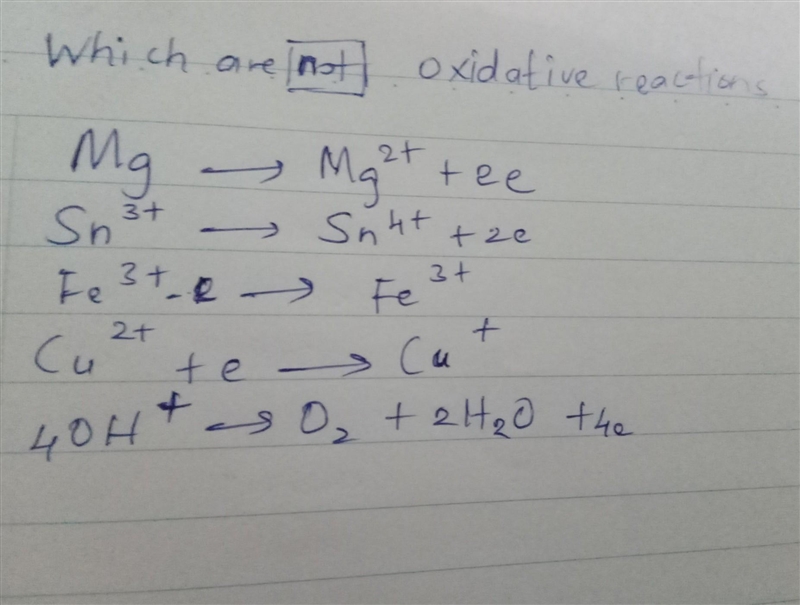 Which are not oxidative reactions
Mg → Mg²⁺ + ee
Sn³⁺ → Sn⁴⁺ + 2e
Fe³⁺ - e → Fe³⁺
Cu²⁺ + e → Cu⁺
4OH⁺ → O₂ + 2H₂O + 4e